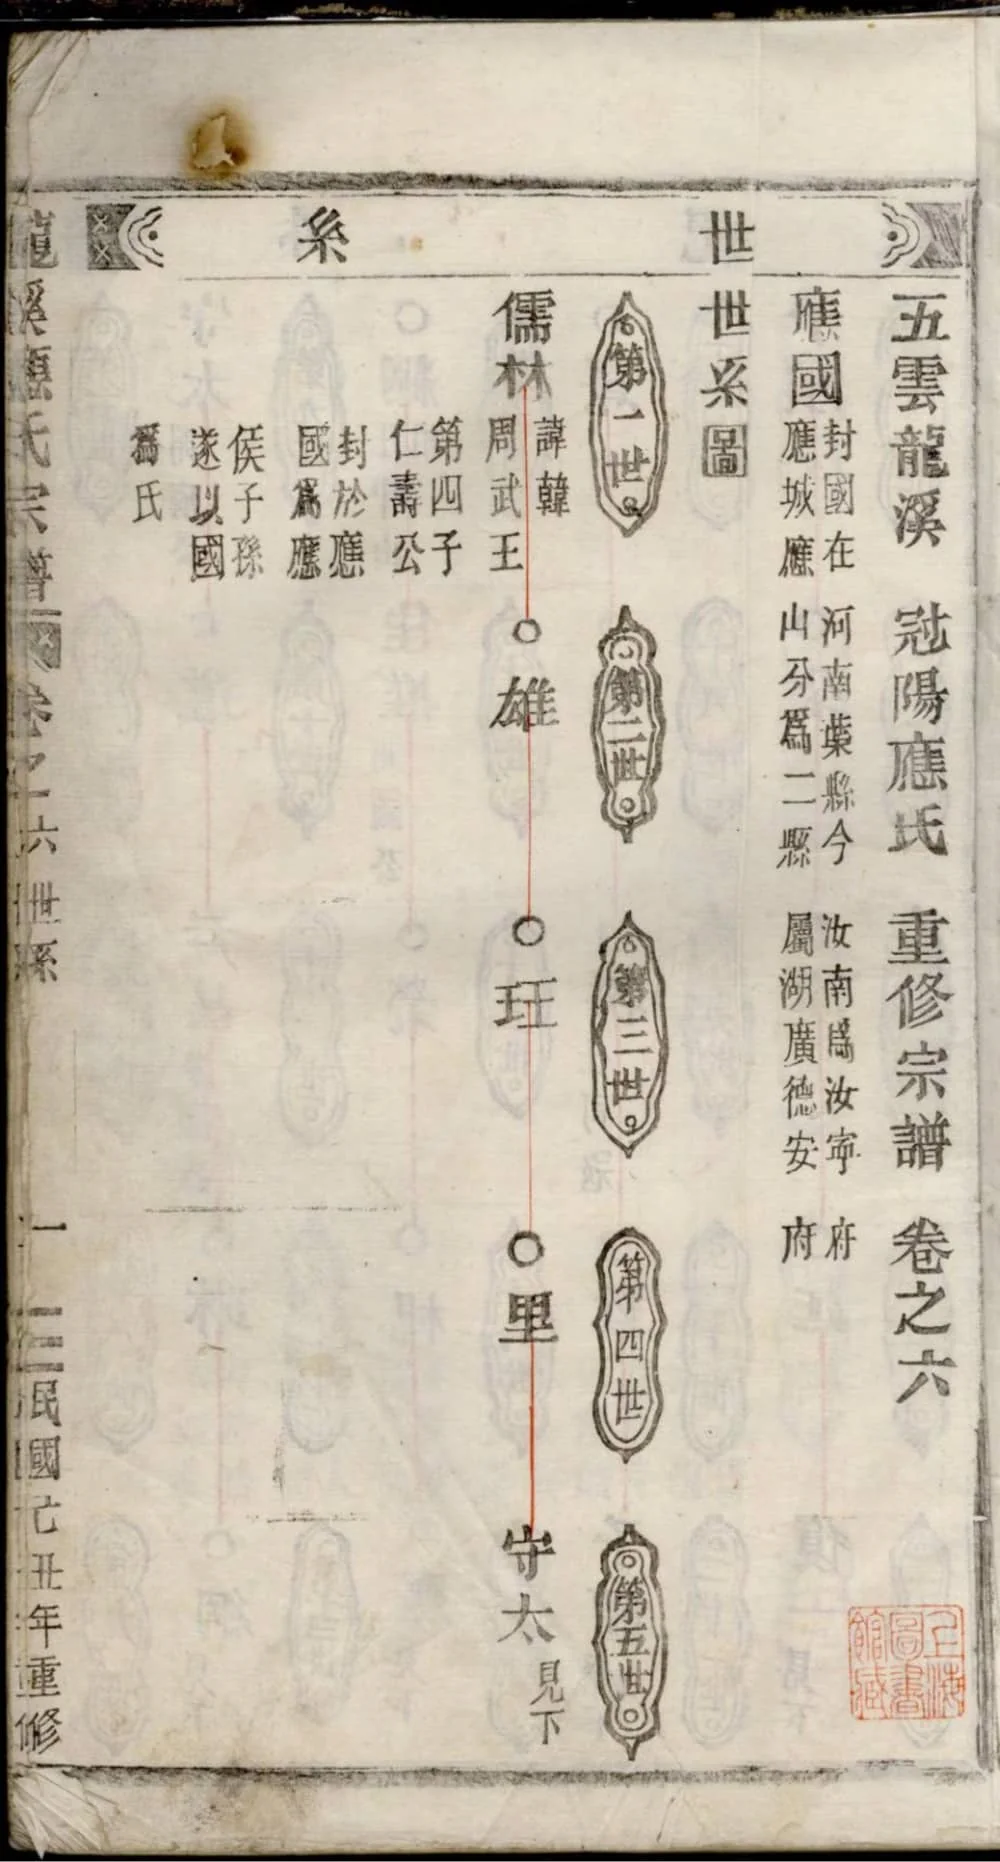 世系
五雲龍溪冠陽應氏重修宗譜卷之六
應國
封國在河南葉縣今汝南爲汝寧府
應城應山分爲二縣屬湖廣德安府
世系圖
第一世
第二世
第三世
第四世
第五世
儒林
諱韓
周武王
第四子
仁壽公
封於應
國爲應
侯子孫
遂以國
爲氏
雄
玨
里
守太
見下
龍溪應氏宗譜
卷之六世系
一
民國己丑年重修
上海圖書館藏